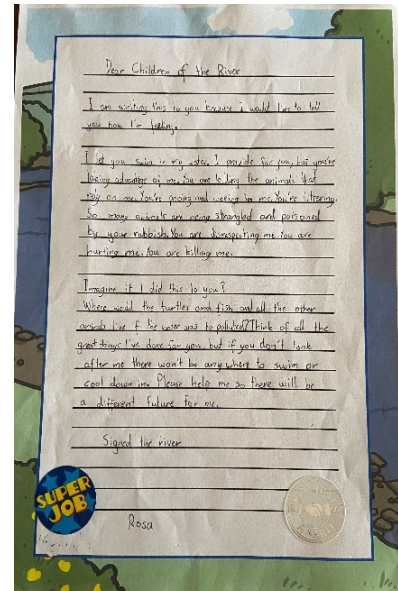 Dear Children of the River
I am writing this to you because i would like to tell
you how I'm feeling.
I let you swim in my water. I provide for you, but you're
taking advantage of me. You are killing the animals that
rely on me. You're and me. You're littering.
So many animals are being strangled and poisoned
by your rubbish. You are disrespecting me. You are
hurting me. You are killing me.
Imagine if I did this to you?
Where would the turtles and fish and all the other
animals live if the water was to polluted? Think of all the
great things I've done for you, but if you don't look
after me there won't be any where to swim or
cool down in. Please help me so there will be
a different future for me.
Signed the river
SUPER
JOB
Rosa